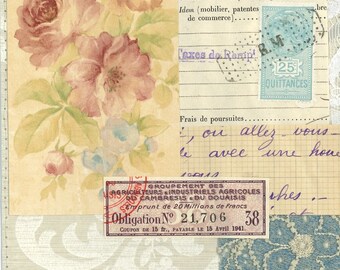 Idem (mobilier, patentes
de commerce)
Taxes de Remp
R.M
25c
QUITTANCES
Frais de poursuites
, où allez-vous-
le avec une
GROUPEMENT DES
AGRICULTEURS & INDUSTRIELS AGRICOLES
DU CAMBRESIS & DU DOUAISIS
Emprunt de 20 Millions de Francs
Obligation No 21,706 38
COUPON DE 15 fr., PAYABLE LE 15 AVRIL 1941.